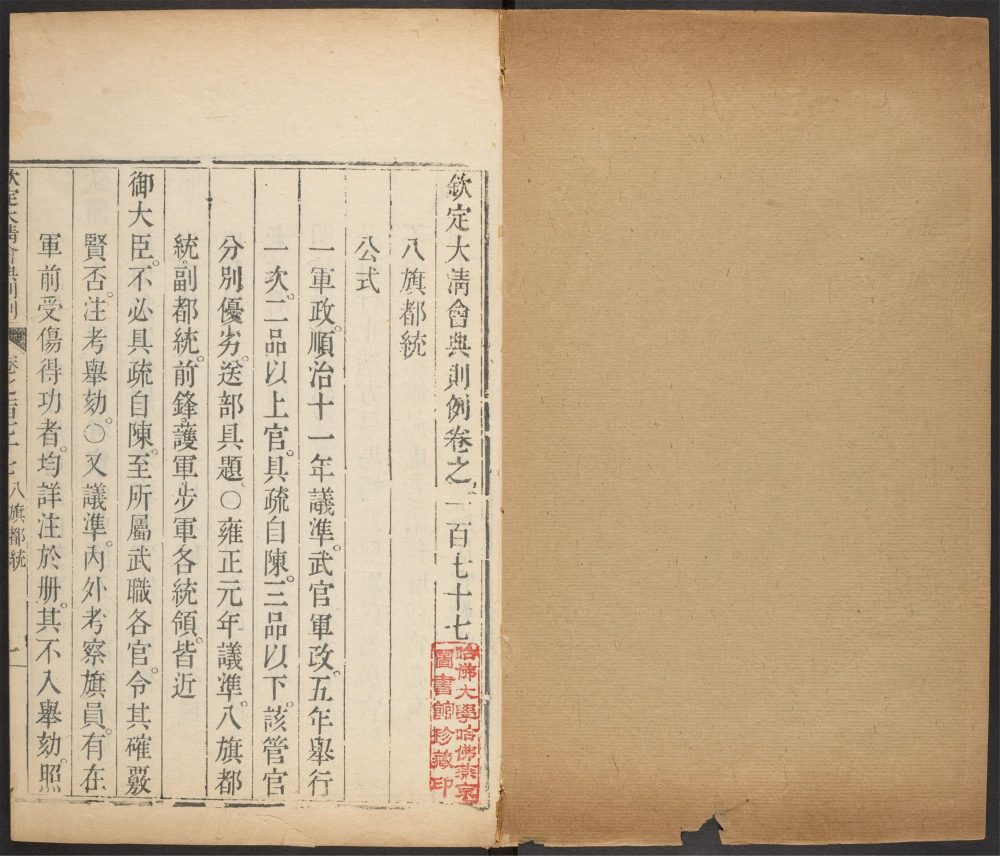 欽定大清會典則例卷之一百七十七
八旗都統
公式
一軍政。順治十一年議準。武官軍政。五年舉行
一次。二品以上官。具疏自陳。三品以下。該管官
分別優劣。送部具題。〇雍正元年議準。八旗都
統。副都統。前鋒。護軍。步軍。各統領。皆近
御大臣。不必具疏自陳。至所屬武職各官。令其確覈
賢否。注考舉劾。〇又議準。內外考察旗員。有在
軍前受傷得功者。均詳注於册。其不入舉劾。照
欽定大清會典則例 八旗都統 一
哈佛大學哈佛燕京
圖書館珍藏印